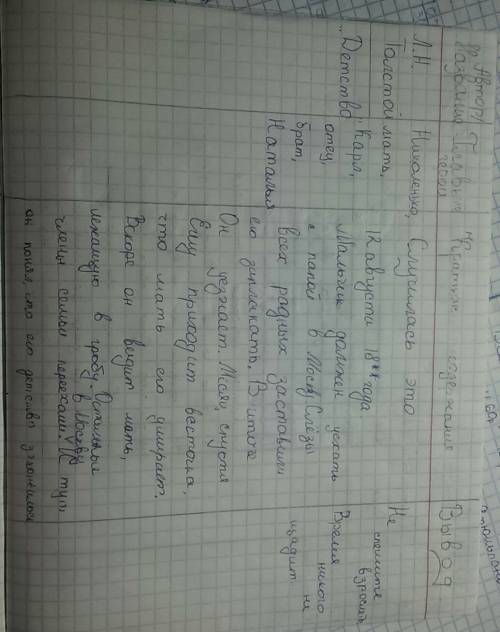 Автор/
Название
Л.Н.
Толстой
"Детство"
Главные
герои
Николенька,
мать,
Карл,
отец,
брат,
Наталья
Краткое содержания
Случилась это
12 августа 18** года
Мальчик должен уехать
с папой в Москву. Слёзы
всех родных заставили
его заплакать. В итоге
Он уезжает. Месяц спустя
Ему приходит весточка,
что мать его умирает.
Вскоре он видит мать,
лежащую в гробу. Остальные
члены семьи переехали в Москву. И тут
он понял, что его детство закончилось
Вывод
Не
спешите
взрослеть
Время никого
не щадит